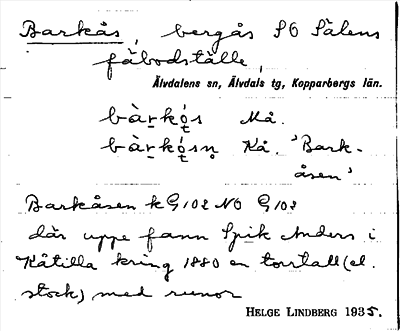 Barkås, bergås SO Sälens
fäbodställe,
Älvdalens sn, Älvdals tg, Kopparbergs län.
bàrkós Må.
bàrkósn Kå. 'Bark-
åsen'
Barkåsen k G102 NO G103
där uppe fann Spik Anders i
Kåtilla kring 1880 en torrtall (el.
stock) med runor
HELGE LINDBERG 1935.